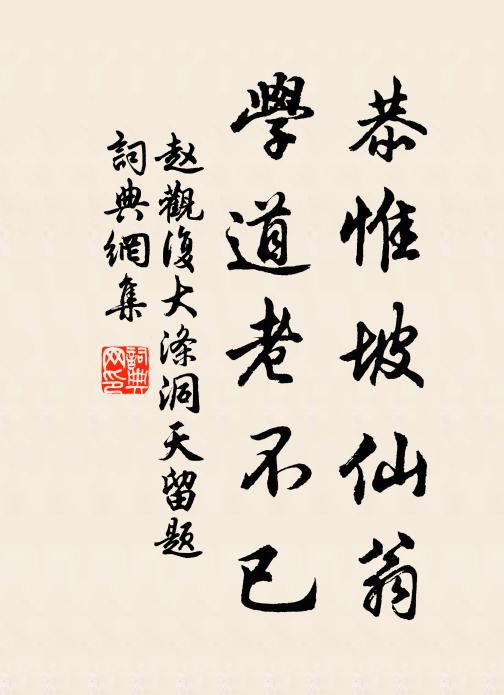 恭惟坡仙翁
學道老不已
赵觀復大涤洞天留题
詞典網集
詞典网印